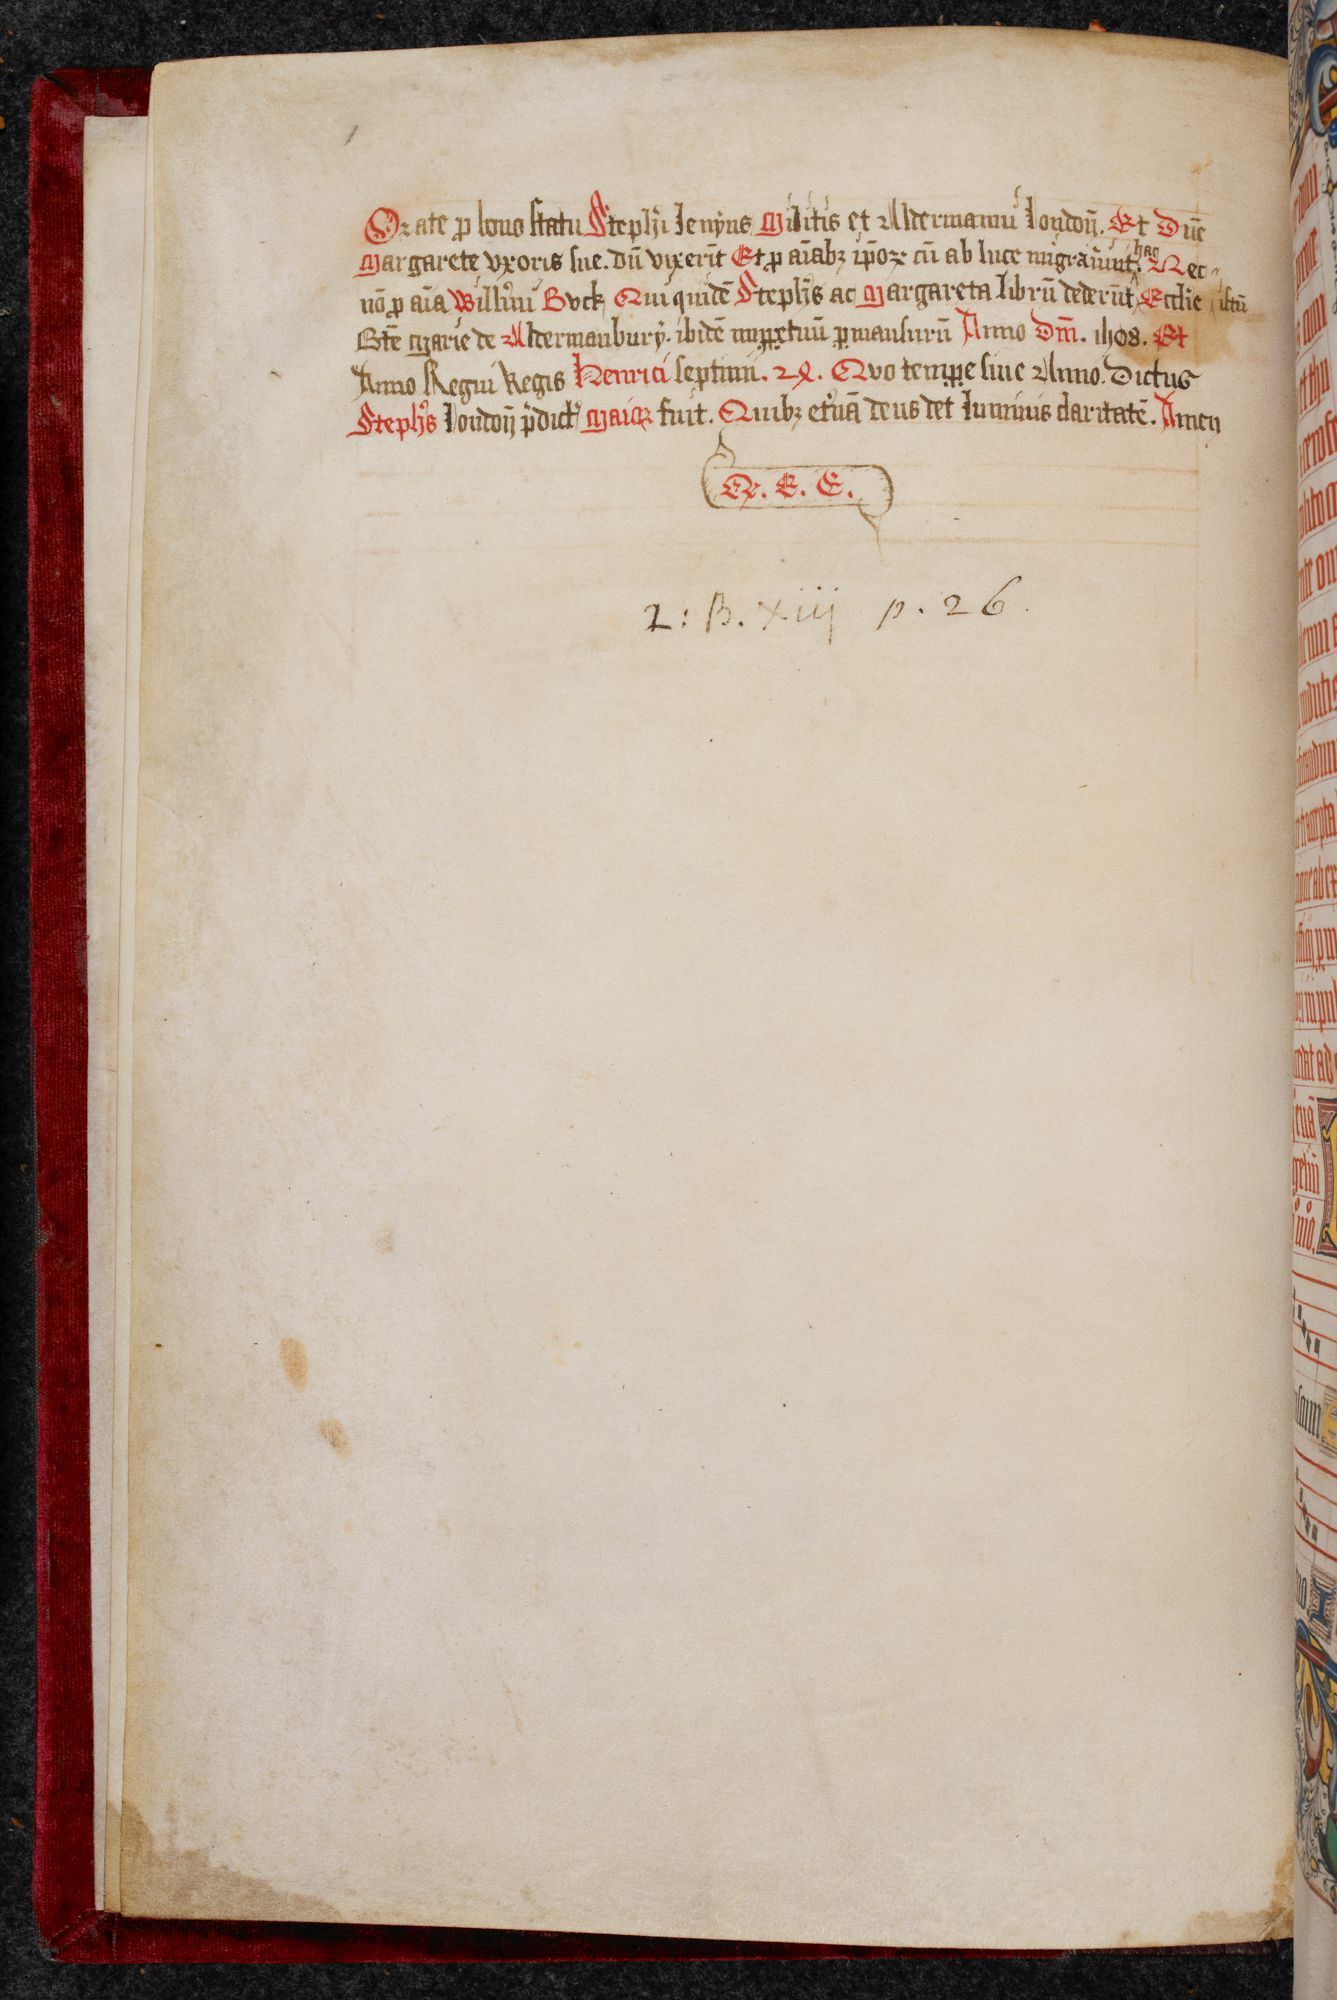 Orate ꝓ bono statu Steph̄i Jenyns Militis et Aldermanni londoñ. Et Dñe
Margarete vxoris sue. dū vixerīt Et ꝓ aīabꝫ ip̄oꝝ cū ab hac luce migraūunt. Nec
nō ꝓ aīa Willm̄i Bvck Qui quidē Steph̄s ac Margareta librū istū dederūt Ecclīe
Btē Marie de Aldermanbury. ibidē imꝑpetuū ꝑmansurū Anno Dm̄. 1508. Et
Anno Regni Regis Henrici septimi. 24. Qvo tempꝑe siue Anno. Dictus
Steph̄s londoñ p̄dict Maioꝝ fuit. Quibꝫ et̄nā deus det luminis claritatē. Amen
2: B. xiij p. 26.